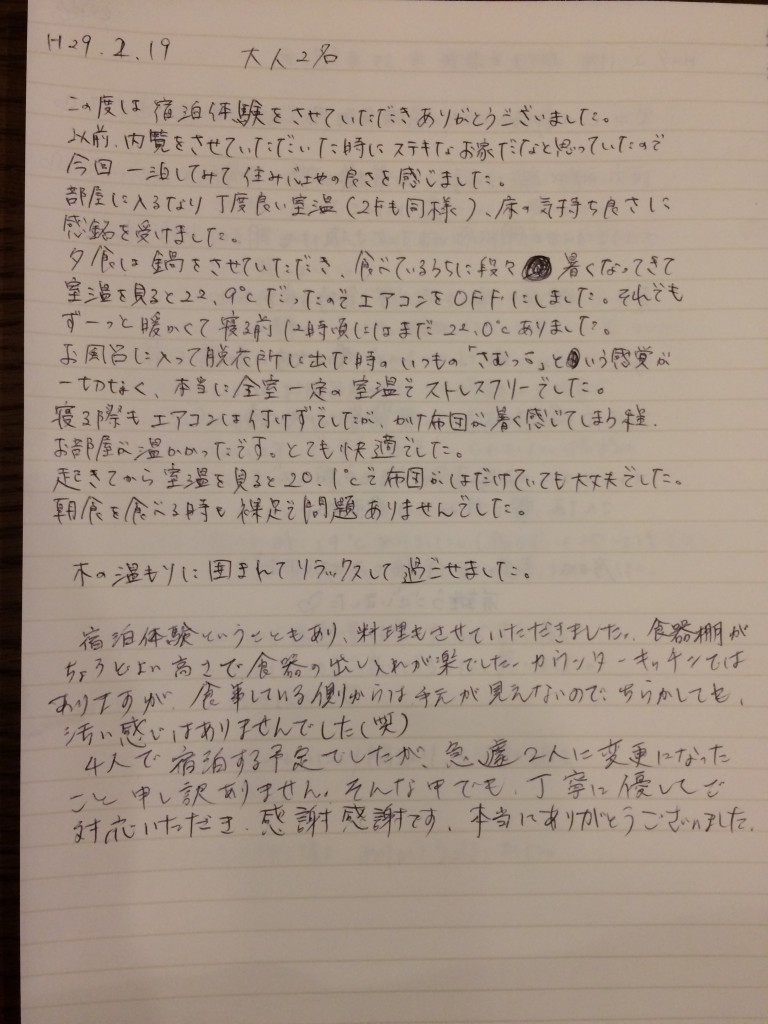 H29.2.19　大人2名
この度は宿泊体験をさせていただきありがとうございました。
以前、内覧をさせていただいた時にステキなお家だなと思っていたので
今回一泊してみて住み心地の良さを感じました。
部屋に入るなり丁度良い室温(2Fも同様)、床の気持ち良さに
感銘を受けました。
夕食は鍋をさせていただき、食べているうちに段々暑くなってきて
室温を見ると22.9℃だったのでエアコンをOFFにしました。それでも
ずーっと暖かくて寝る前12時頃にはまだ22.0℃ありました。
お風呂に入って脱衣所に出た時のいつもの「さむっっ」という感覚が
一切なく、本当に全室一定の室温でストレスフリーでした。
寝る際もエアコンは付けずでしたが、かけ布団が暑く感じてしまう程、
お部屋が温かかったです。とても快適でした。
起きてから室温を見ると20.1℃で布団がはだけていても大丈夫でした。
朝食を食べる時も裸足で問題ありませんでした。
木の温もりに囲まれてリラックスして過ごせました。
宿泊体験ということもあり、料理もさせていただきました。食器棚が
ちょうどよい高さで食器の出し入れが楽でした。カウンターキッチンでは
ありますが、食事している側からは手元が見えないので、ちらかしても、
汚い感じはありませんでした(笑)
4人で宿泊する予定でしたが、急遽2人に変更になった
こと申し訳ありません。そんな中でも、丁寧に優しくご
対応いただき、感謝感謝です。本当にありがとうございました。